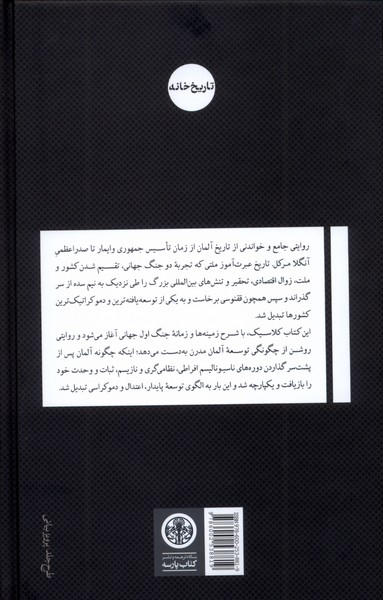 تاریخ‌خانه
روایتی جامع و خواندنی از تاریخ آلمان از زمان تأسیس جمهوری وایمار تا صدراعظمیِ
آنگلا مرکل. تاریخ عبرت‌آموز ملتی که تجربهٔ دو جنگ جهانی، تقسیم شدن کشور و
ملت، زوال اقتصادی، تحقیر و تنش‌های بین‌المللی بزرگ را طی نزدیک به نیم سده از سر
گذراند و سپس همچون ققنوسی برخاست و به یکی از توسعه‌یافته‌ترین و دموکراتیک‌ترین
کشورها تبدیل شد.
این کتاب کلاسیک، با شرح زمینه‌ها و زمانهٔ جنگ اول جهانی آغاز می‌شود و روایتی
روشن از چگونگی توسعهٔ آلمان مدرن به‌دست می‌دهد؛ اینکه چگونه آلمان پس از
پشت‌سر گذاردن دوره‌های ناسیونالیسم افراطی، نظامی‌گری و نازیسم، ثبات و وحدت خود
را بازیافت و یکپارچه شد و این بار به الگوی توسعهٔ پایدار، اعتدال و دموکراسی تبدیل شد.
طرح جلد: پرویز بیانی
بنگاه ترجمه و نشر
کتاب پارسه